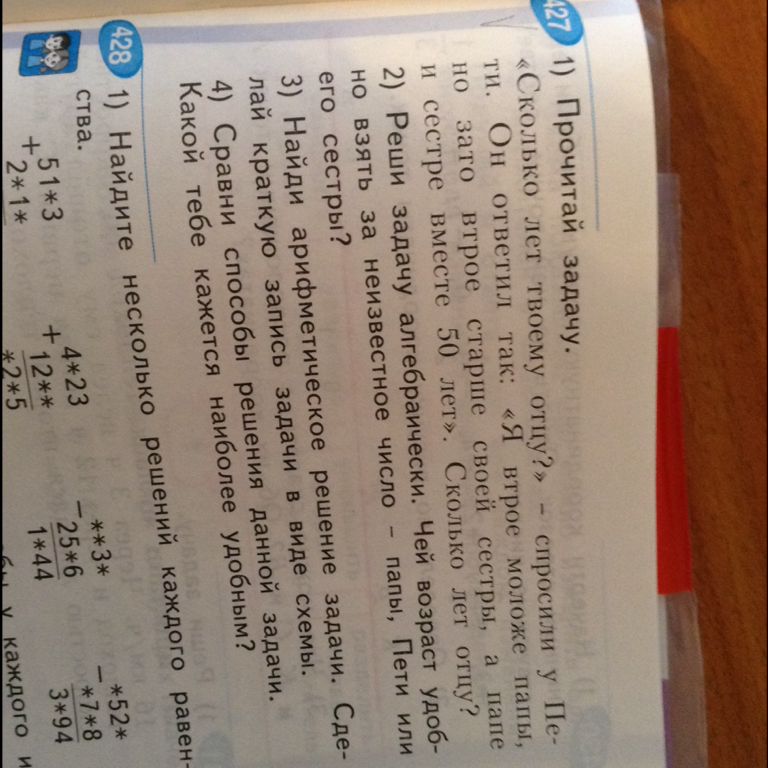 427 1) Прочитай задачу.
«Сколько лет твоему отцу?» – спросили у Пе-
ти. Он ответил так: «Я втрое моложе папы,
но зато втрое старше своей сестры, а папе
и сестре вместе 50 лет». Сколько лет отцу?
2) Реши задачу алгебраически. Чей возраст удоб-
но взять за неизвестное число – папы, Пети или
его сестры?
3) Найди арифметическое решение задачи. Сде-
лай краткую запись задачи в виде схемы.
4) Сравни способы решения данной задачи.
Какой тебе кажется наиболее удобным?
428 1) Найдите несколько решений каждого равен-
ства.
51*3 4*23 **3* *52*
+ 2*1* + 12** – 25*6 – *7*8
*2*5 1*44 3*94
у каждого